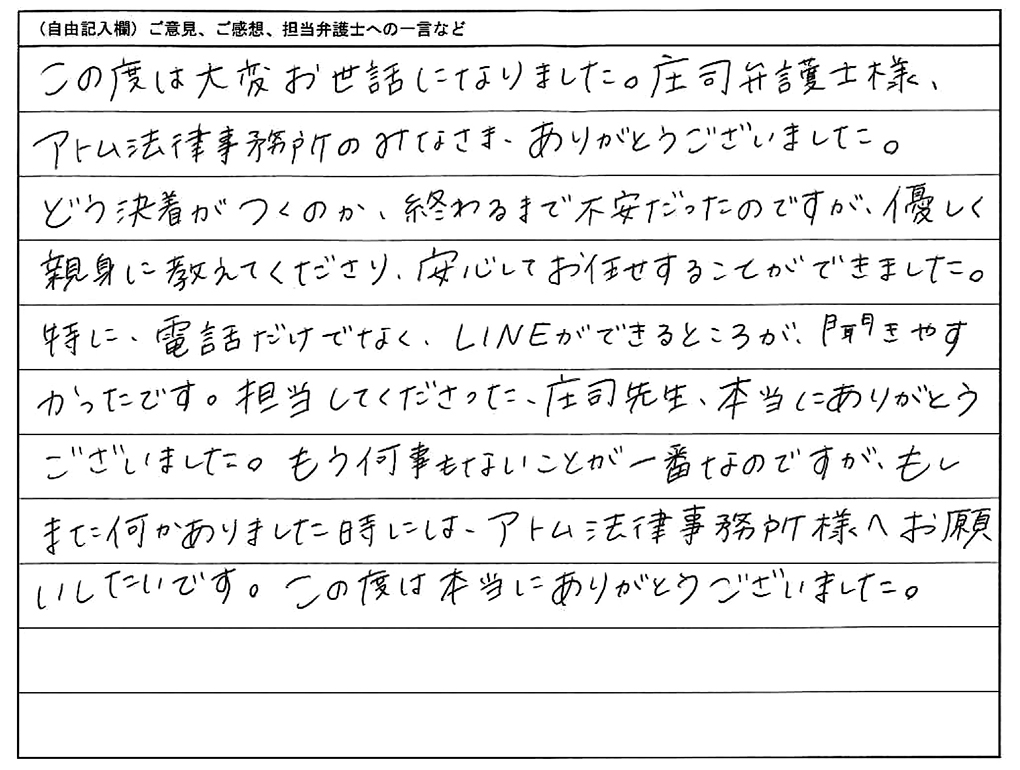 （自由記入欄）ご意見、ご感想、担当弁護士への一言など
この度は大変お世話になりました。庄司弁護士様、
アトム法律事務所のみなさま、ありがとうございました。
どう決着がつくのか、終わるまで不安だったのですが、優しく
親身に教えてくださり、安心してお任せすることができました。
特に、電話だけでなく、LINEができるところが、聞きやす
かったです。担当してくださった、庄司先生、本当にありがとう
ございました。もう何事もないことが一番なのですが、もし
また何かありました時には、アトム法律事務所様へお願
いしたいです。この度は本当にありがとうございました。